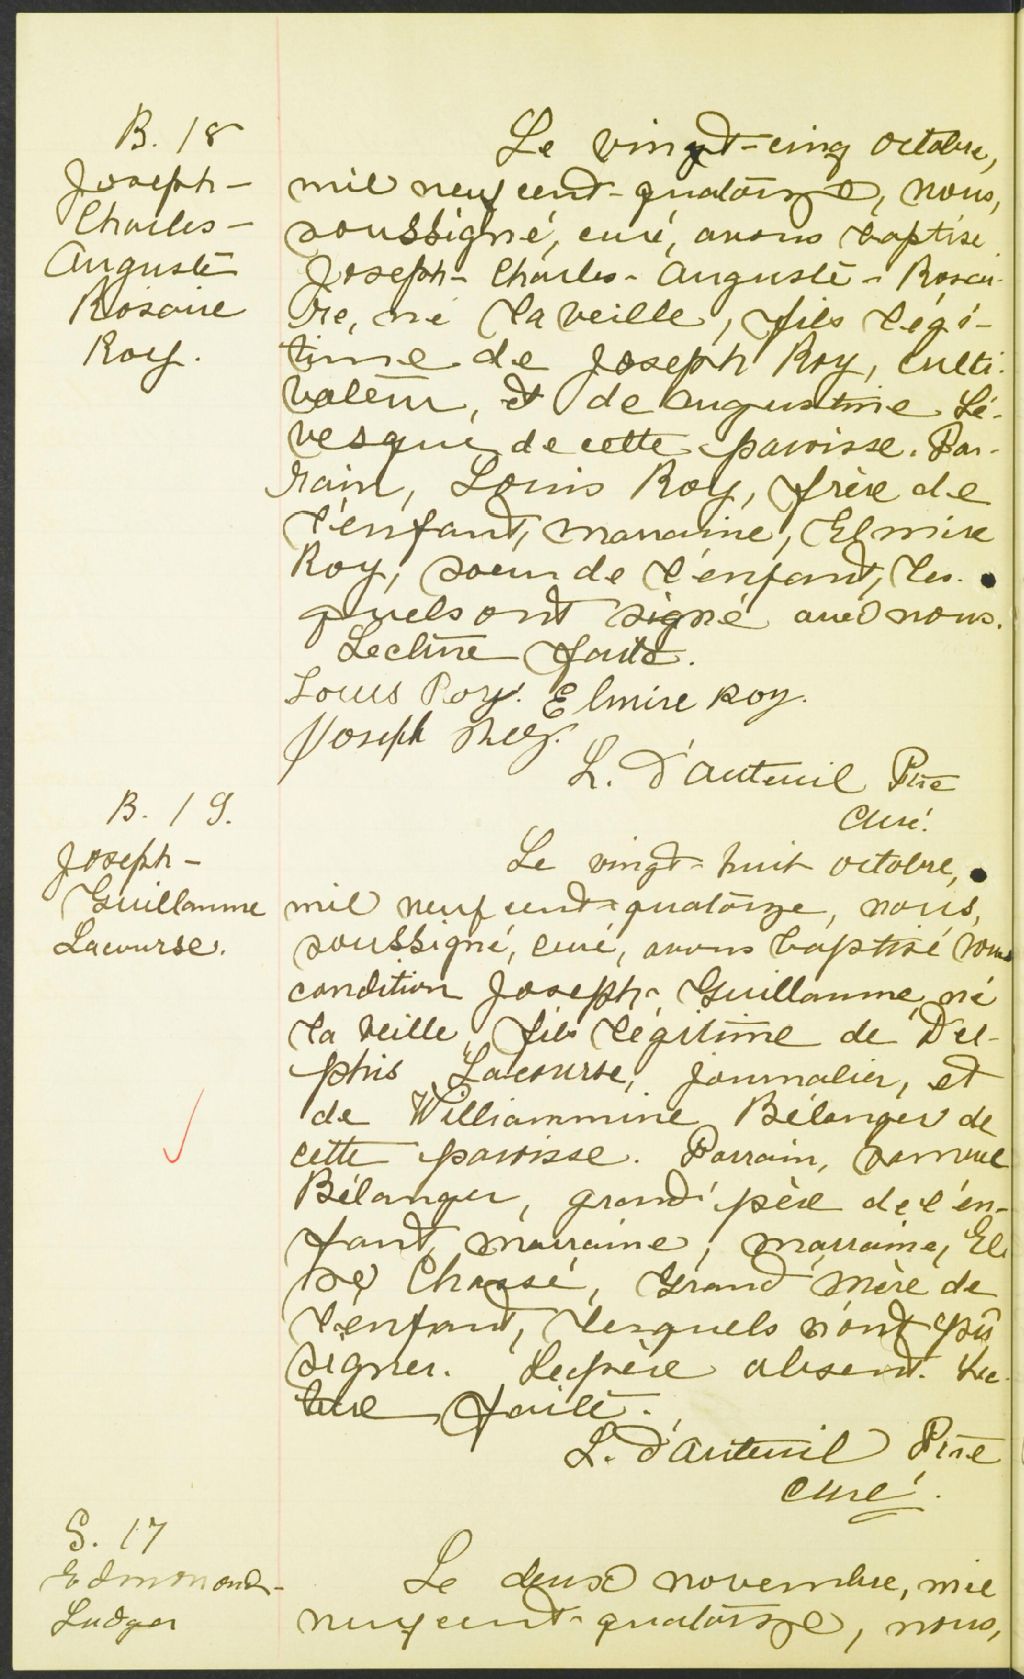 B. 18
Joseph-
Charles-
Auguste
Rosaire
Roy.
Le vingt-cinq octobre,
mil neuf cent-quatorze, nous,
soussigné, curé, avons baptisé
Joseph-Charles-Auguste-Rosai-
re, né la veille, fils légi-
time de Joseph Roy, culti-
vateur, et de Augustine Lé-
vesque de cette paroisse. Par-
rain, Louis Roy, frère de
l'enfant, marraine, Elmire
Roy, soeur de l'enfant, les-
quels ont signé avec nous.
Lecture faite.
Louis Roy. Elmire Roy.
Joseph Roy.
L. D'Auteuil Ptre
Curé.
B. 19.
Joseph-
Guillaume
Lacourse.
Le vingt-huit octobre,
mil neuf cent-quatorze, nous,
soussigné, curé, avons baptisé sous
condition Joseph-Guillaume, né
la veille, fils légitime de Del-
phis Lacourse, journalier, et
de Williammine Bélanger de
cette paroisse. Parrain, Samuel
Bélanger, grand'père de l'en-
fant, marraine, marraine, El-
ise Chassé, Grand'mère de
l'enfant, lesquels n'ont pu
signer. Le père absent. Lec-
ture faite.
L. d'Auteuil Ptre
curé.
S. 17
Edmond-
Ludger
Le deux novembre, mil
neuf cent-quatorze, nous,